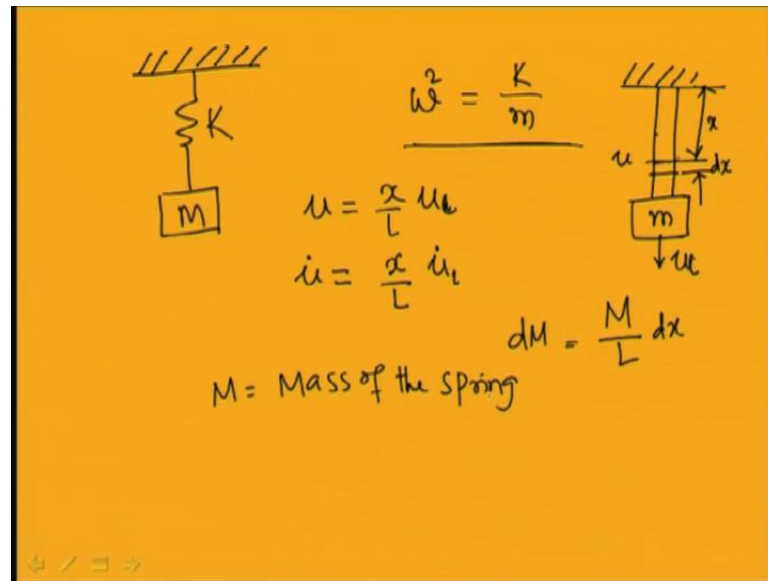 K
M
ω² = K/m
u = x/L u_L
u̇ = x/L u̇_L
x
u
dx
m
u_L
dM = M/L dx
M = Mass of the spring